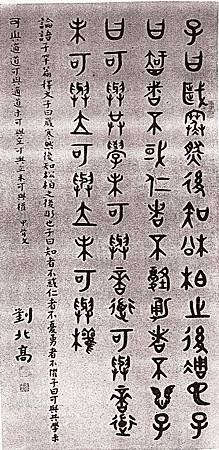 子曰歲寒然後知松柏之後彫也子
曰知者不惑仁者不憂勇者不懼子
曰可與共學未可與適道可與適道
未可與立可與立未可與權
論語子罕篇釋文子曰歲寒然後知松柏之後彫也子曰知者不惑仁者不憂勇者不懼子曰可與共學未
可與適道可與適道未可與立可與立未可與權
劉北高